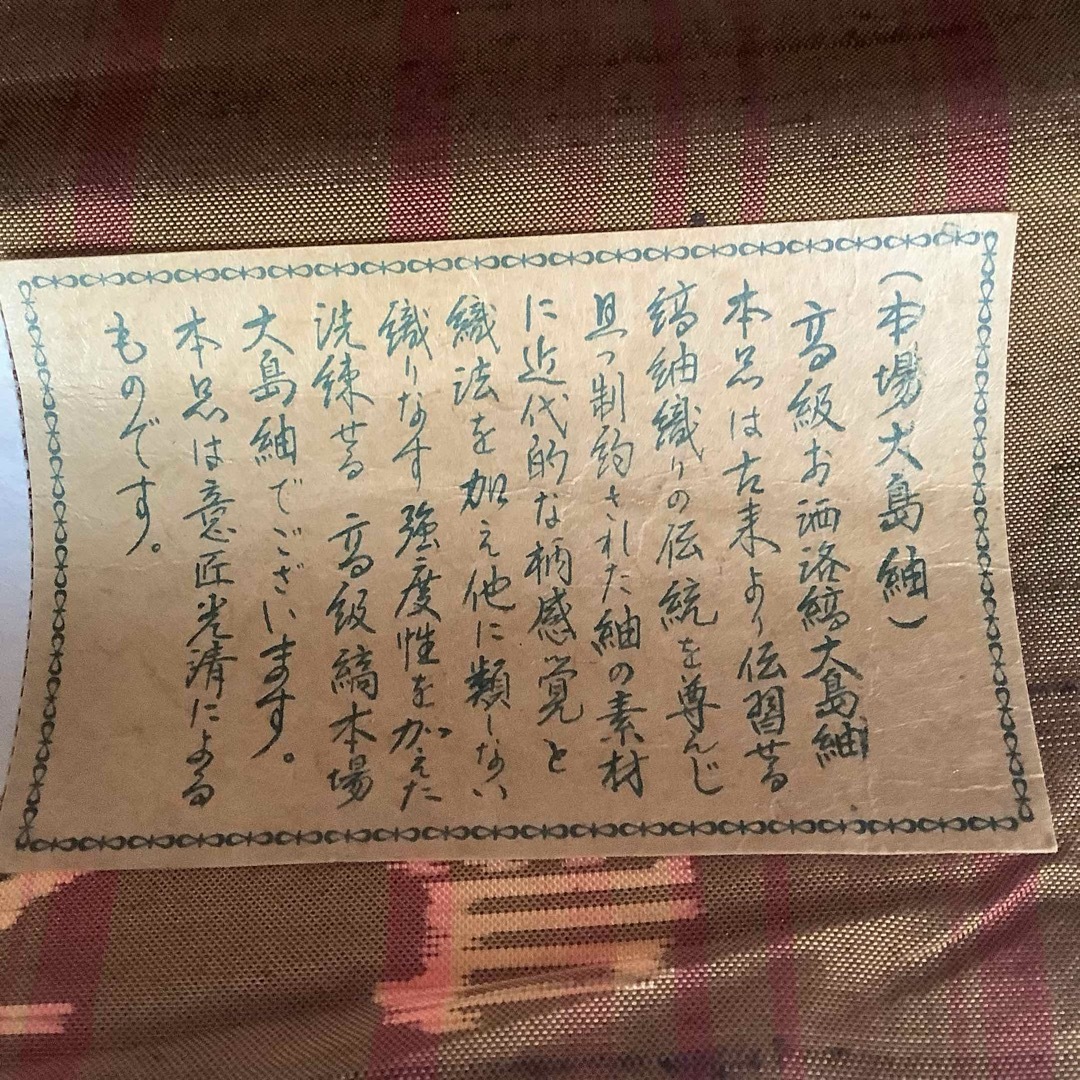 (本場大島紬)
高級お洒落縞大島紬
本品は古来より伝習せる
縞紬織りの伝統を尊んじ
且つ制約された紬の素材
に近代的な柄感覚と
織法を加え他に類しない
織りなす強度性をがえた
洗練せる 高級縞本場
大島紬でございます。
本品は意匠光清による
ものです。